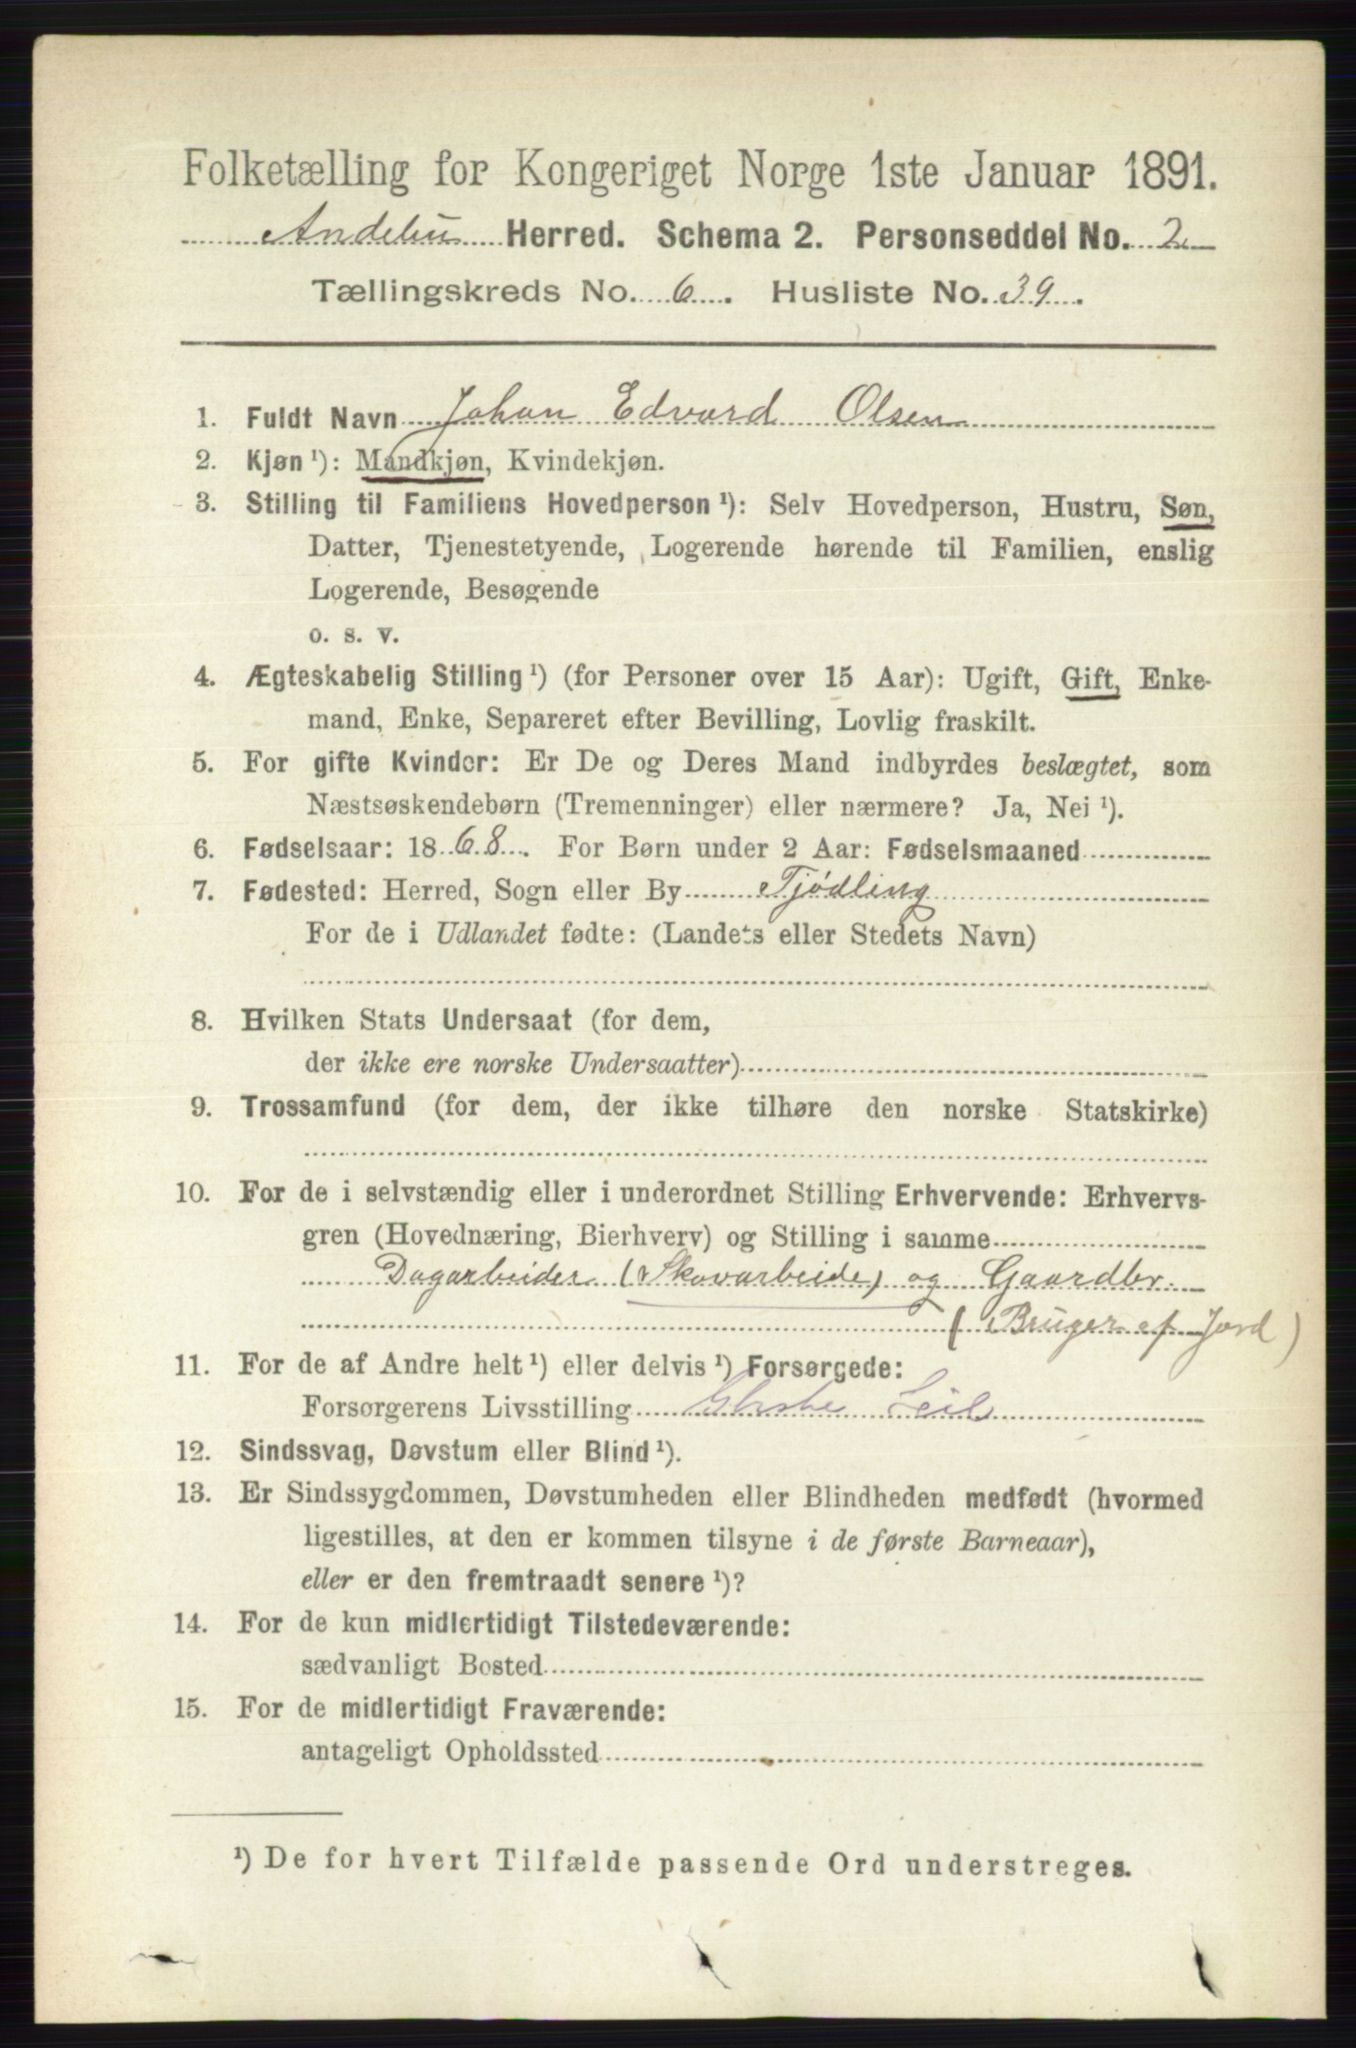 Folketælling for Kongeriget Norge 1ste Januar 1891.
Andebu Herred. Schema 2. Personseddel No. 2
Tællingskreds No. 6. Husliste No. 39.
1. Fuldt Navn Johan Edvard Olsen
2. Kjøn ¹): Mandkjøn, Kvindekjøn.
3. Stilling til Familiens Hovedperson ¹): Selv Hovedperson, Hustru, Søn,
Datter, Tjenestetyende, Logerende hørende til Familien, enslig
Logerende, Besøgende
o. s. v.
4. Ægteskabelig Stilling ¹) (for Personer over 15 Aar): Ugift, Gift, Enke-
mand, Enke, Separeret efter Bevilling, Lovlig fraskilt.
5. For gifte Kvinder: Er De og Deres Mand indbyrdes beslægtet, som
Næstsøskendebørn (Tremenninger) eller nærmere? Ja, Nei ¹).
6. Fødselsaar: 1868. For Børn under 2 Aar: Fødselsmaaned
7. Fødested: Herred, Sogn eller By Tjødling
For de i Udlandet fødte: (Landets eller Stedets Navn)
8. Hvilken Stats Undersaat (for dem,
der ikke ere norske Undersaatter)
9. Trossamfund (for dem, der ikke tilhøre den norske Statskirke)
10. For de i selvstændig eller i underordnet Stilling Erhvervende: Erhvervs-
gren (Hovednæring, Bierhverv) og Stilling i samme
Dagarbeider (Skovarbeide) og Gaardbr.
(Bruger af Jord)
11. For de af Andre helt ¹) eller delvis ¹) Forsørgede:
Forsørgerens Livsstilling
12. Sindssvag, Døvstum eller Blind ¹).
13. Er Sindssygdommen, Døvstumheden eller Blindheden medfødt (hvormed
ligestilles, at den er kommen tilsyne i de første Barneaar),
eller er den fremtraadt senere ¹)?
14. For de kun midlertidigt Tilstedeværende:
sædvanligt Bosted
15. For de midlertidigt Fraværende:
antageligt Opholdssted
¹) De for hvert Tilfælde passende Ord understreges.